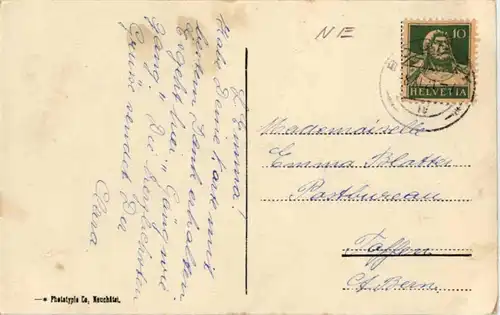 L. Emma!
Habe Deine Karte mit
bestem Dank erhalten.
"Gäng wie
gäng." Die herzlichsten
Grüsse sendet Dir
Clara.
NE
10
HELVETIA
Mademoiselle
Emma Blatter
Postbureau
Toffen
Kt. Bern.
Phototypie Co, Neuchâtel.